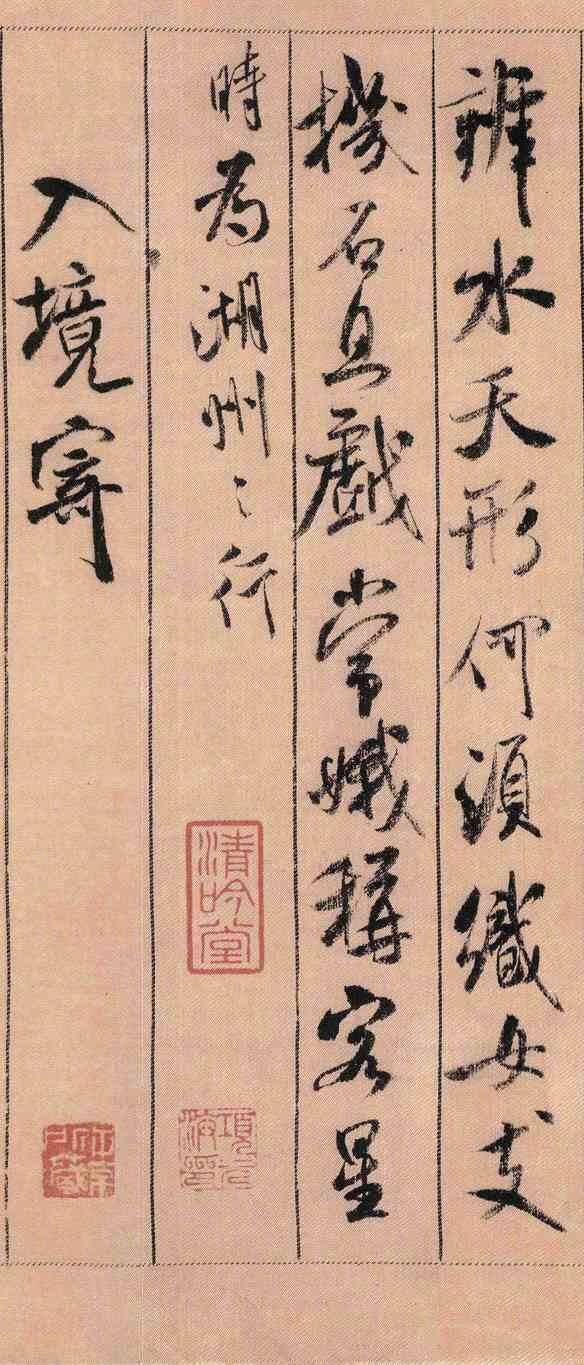 辨水天形何須織女支
機石且戲常娥稱客星
時為湖州之行
入境寄
清吟堂
項元汴印